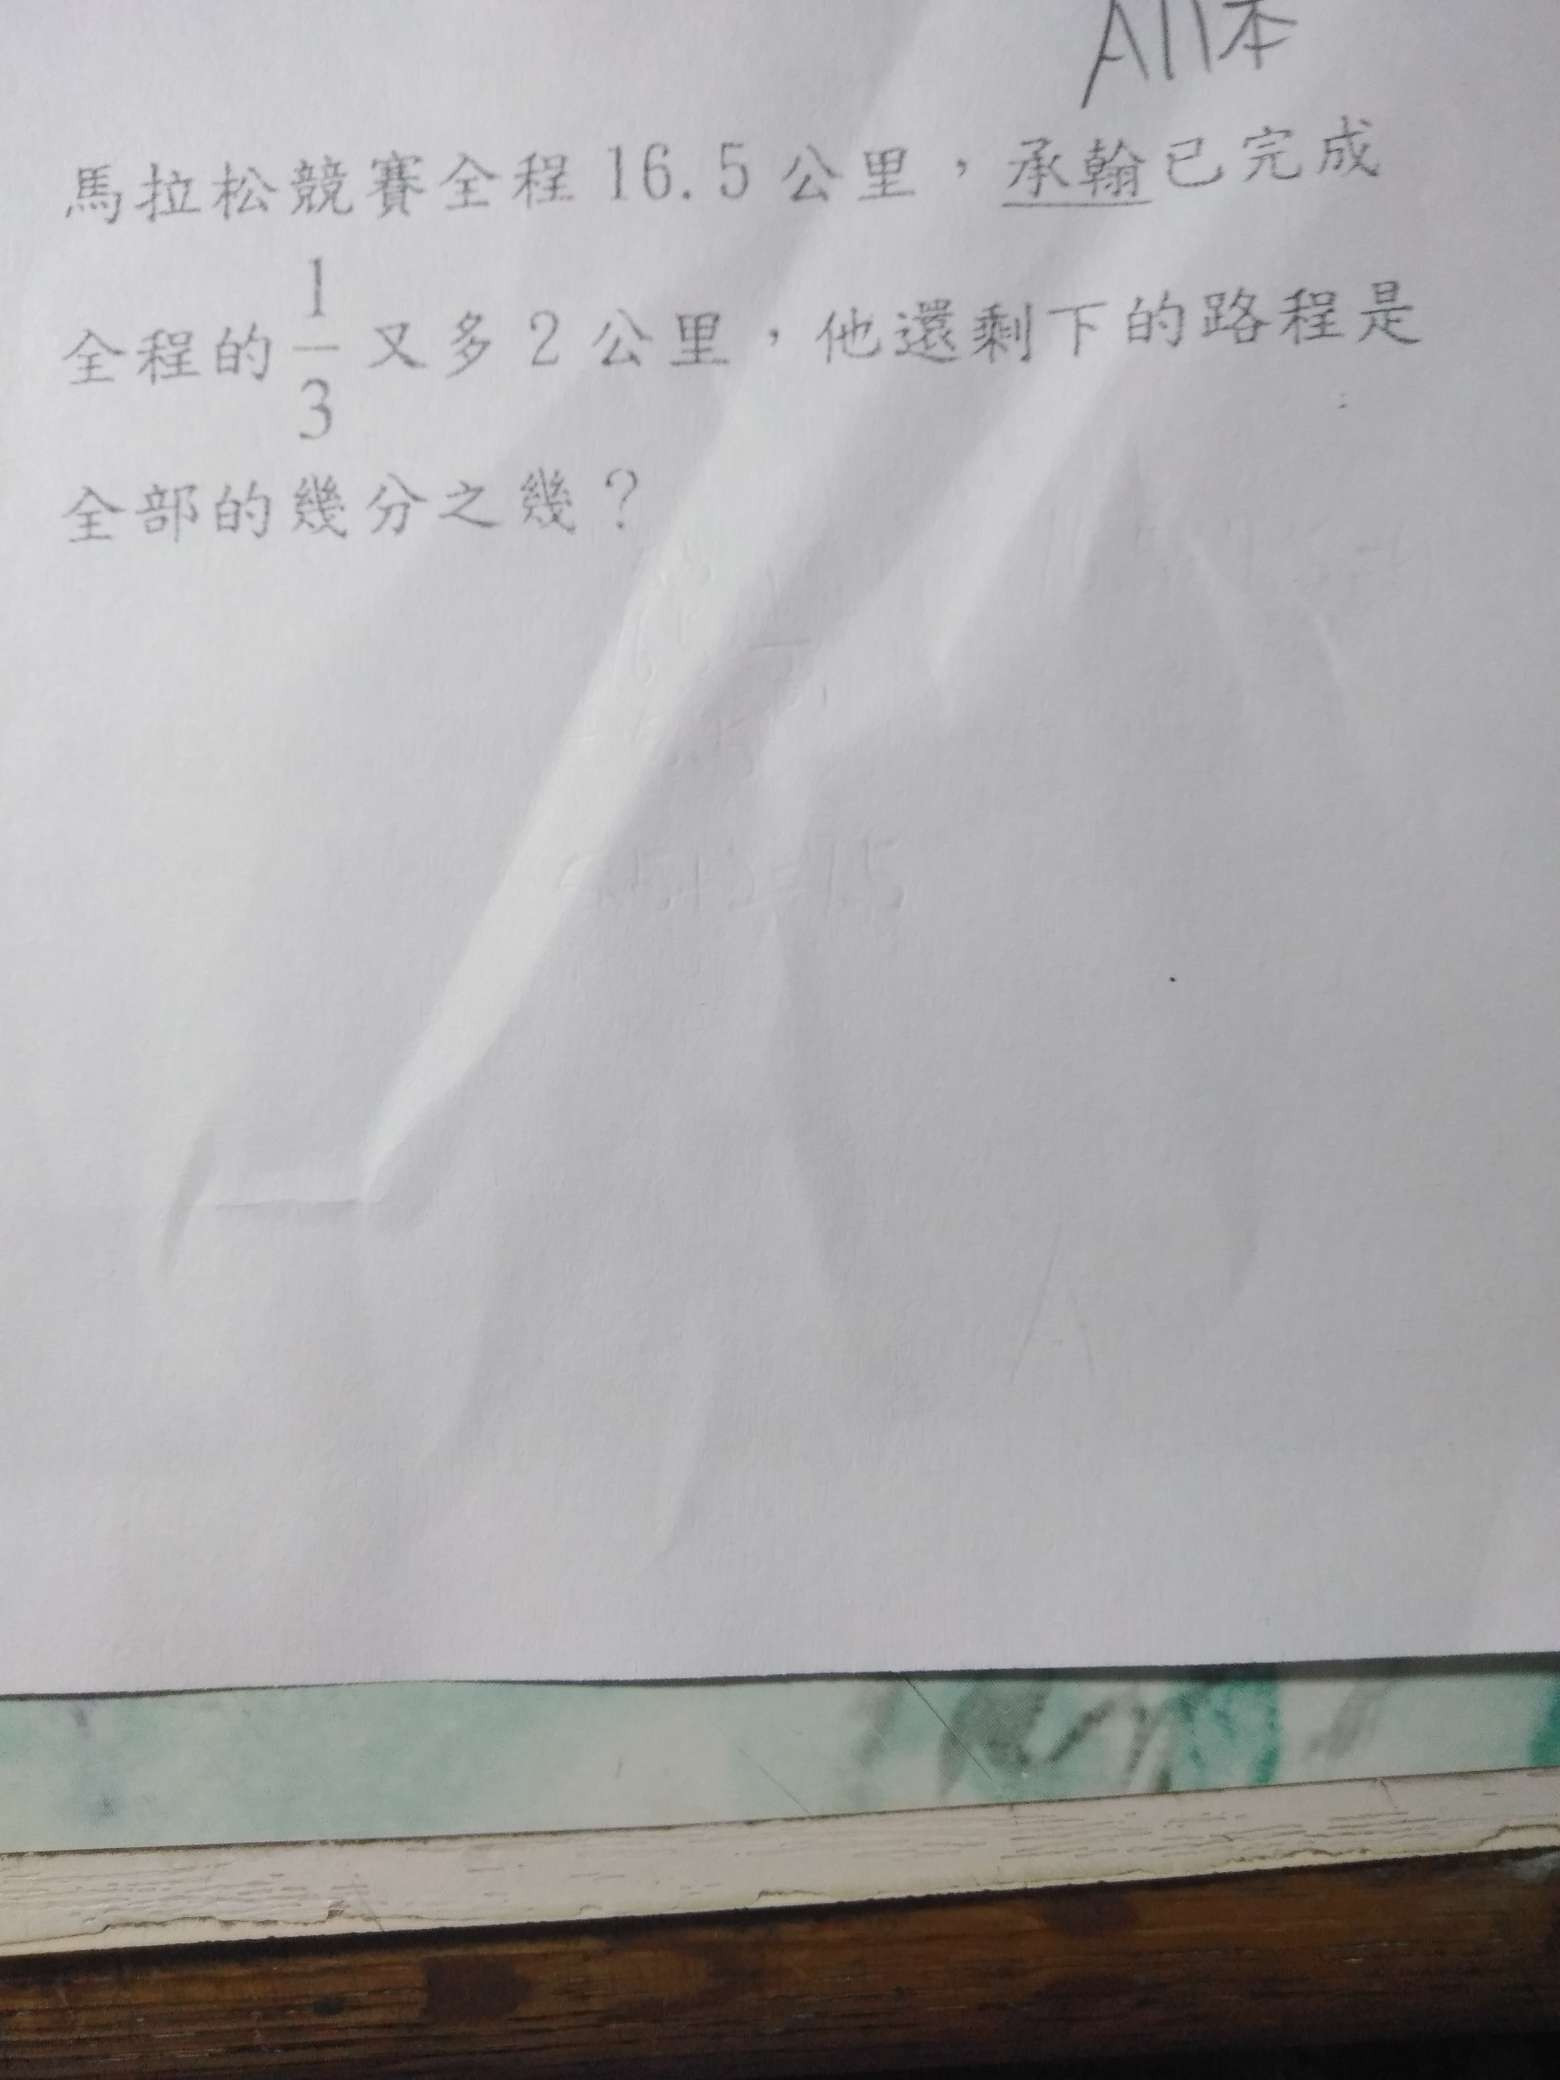 A11本
馬拉松競賽全程16.5公里，承翰已完成
全程的1/3又多2公里，他還剩下的路程是
全部的幾分之幾？
5.5+2=7.5